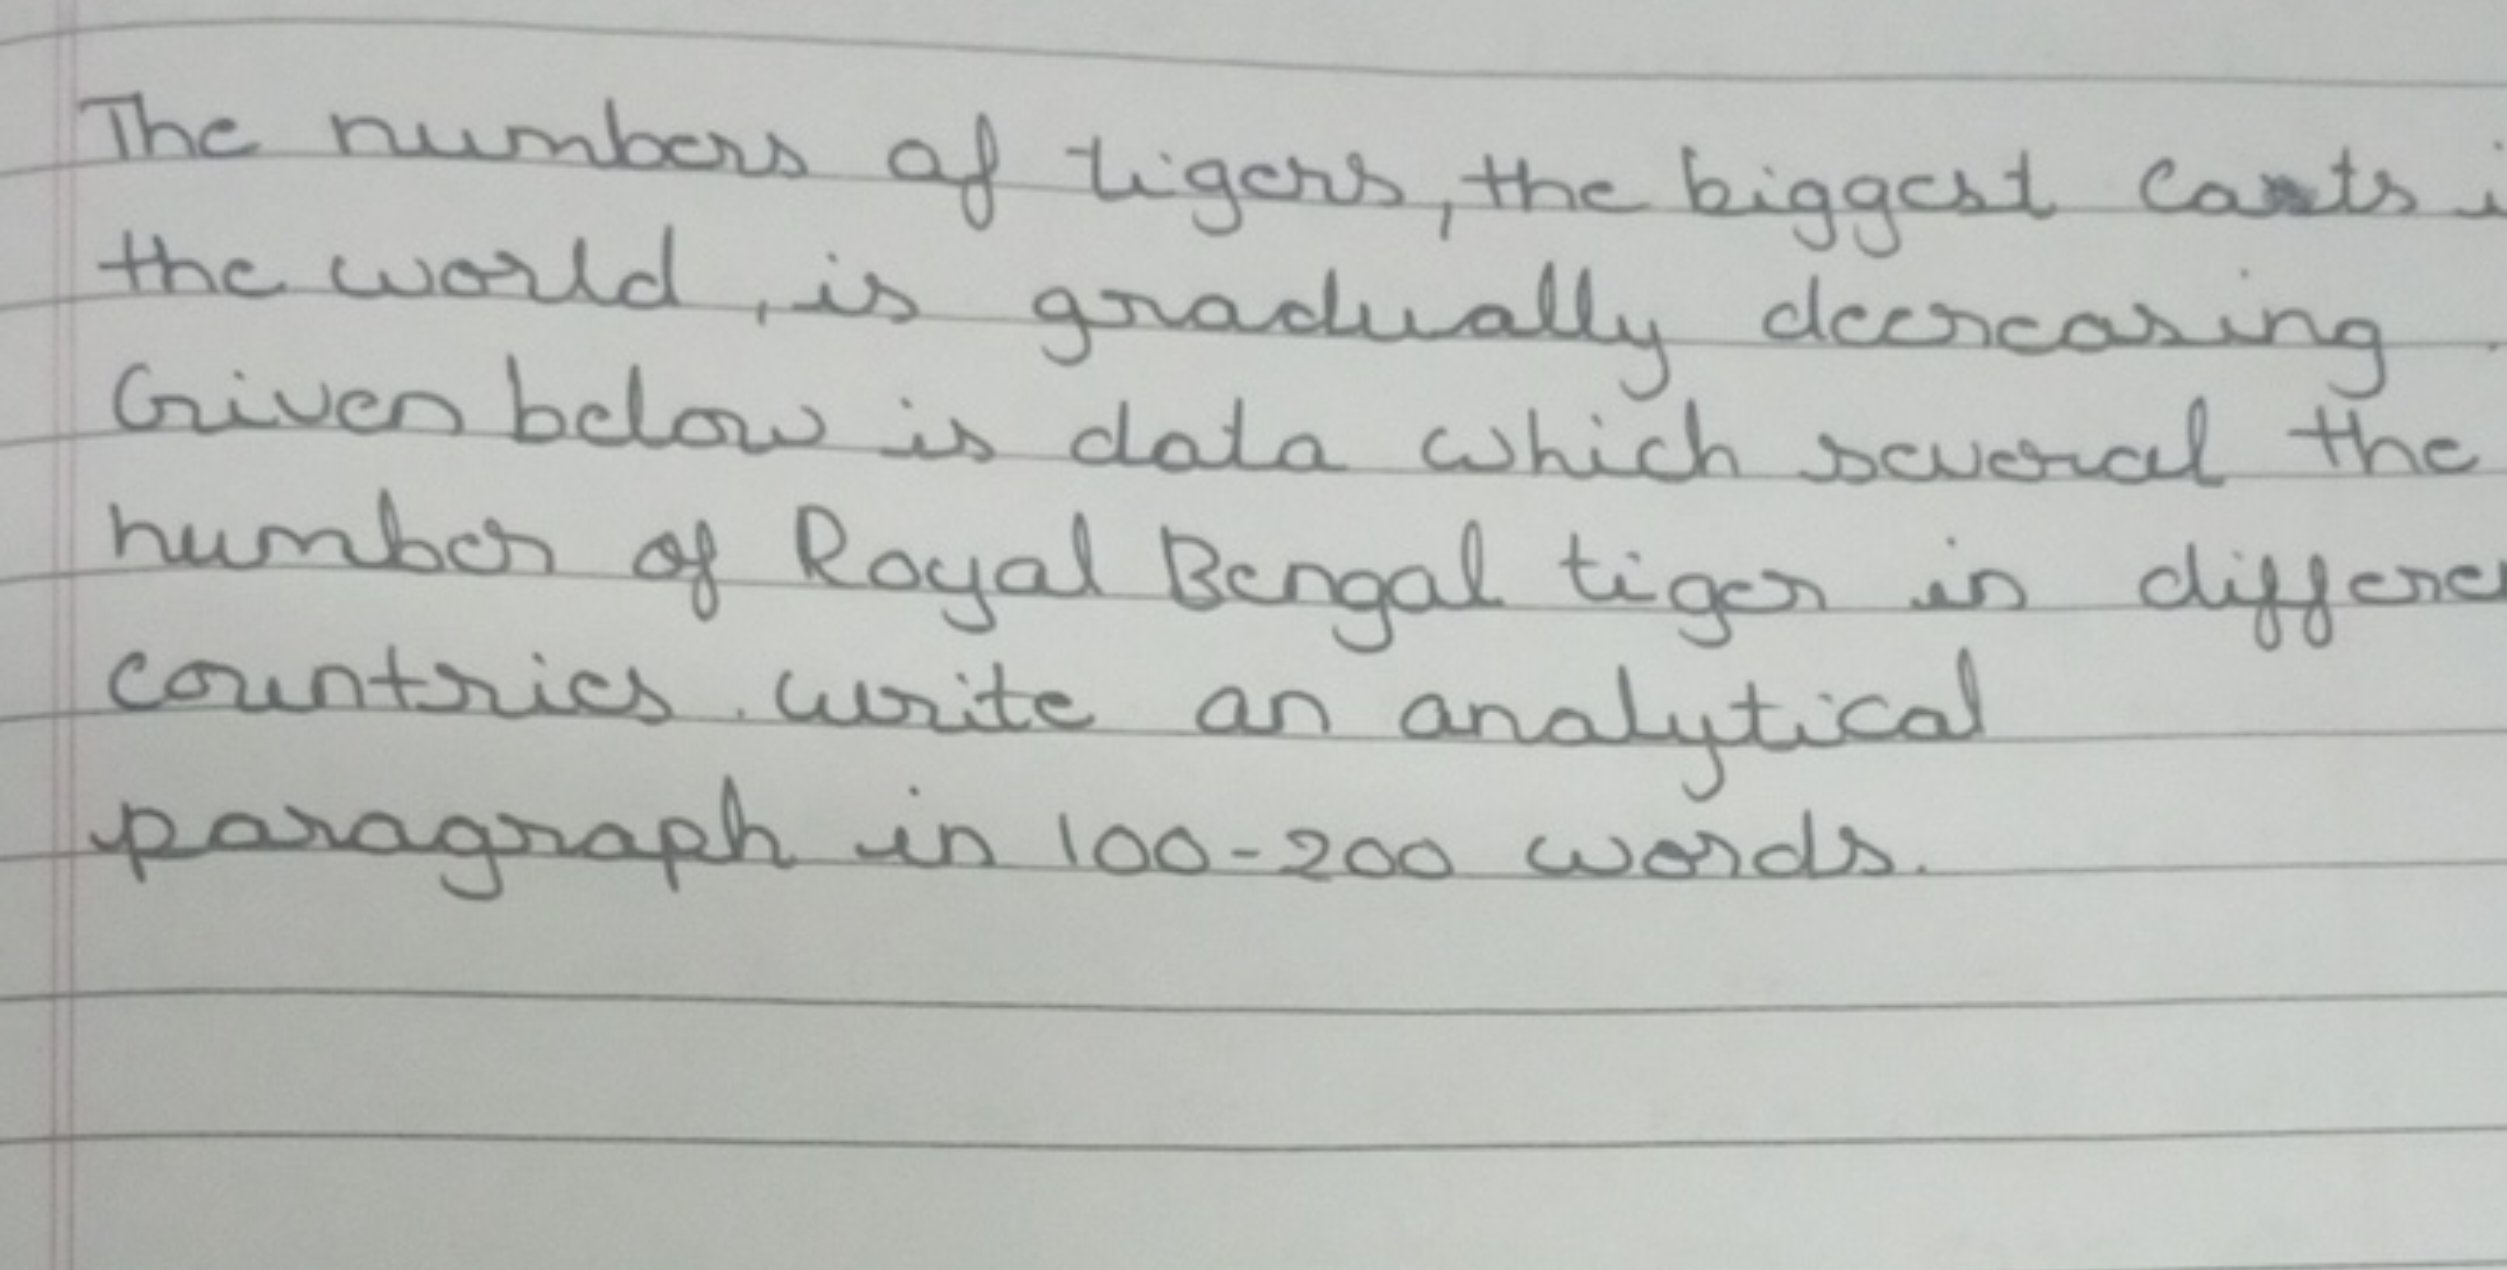 The numbers of tigers, the biggest cats i
the world, is gradually decreasing.
Given below is data which several the
number of Royal Bengal tiger in differe
countries. write an analytical
paragraph in 100-200 words.